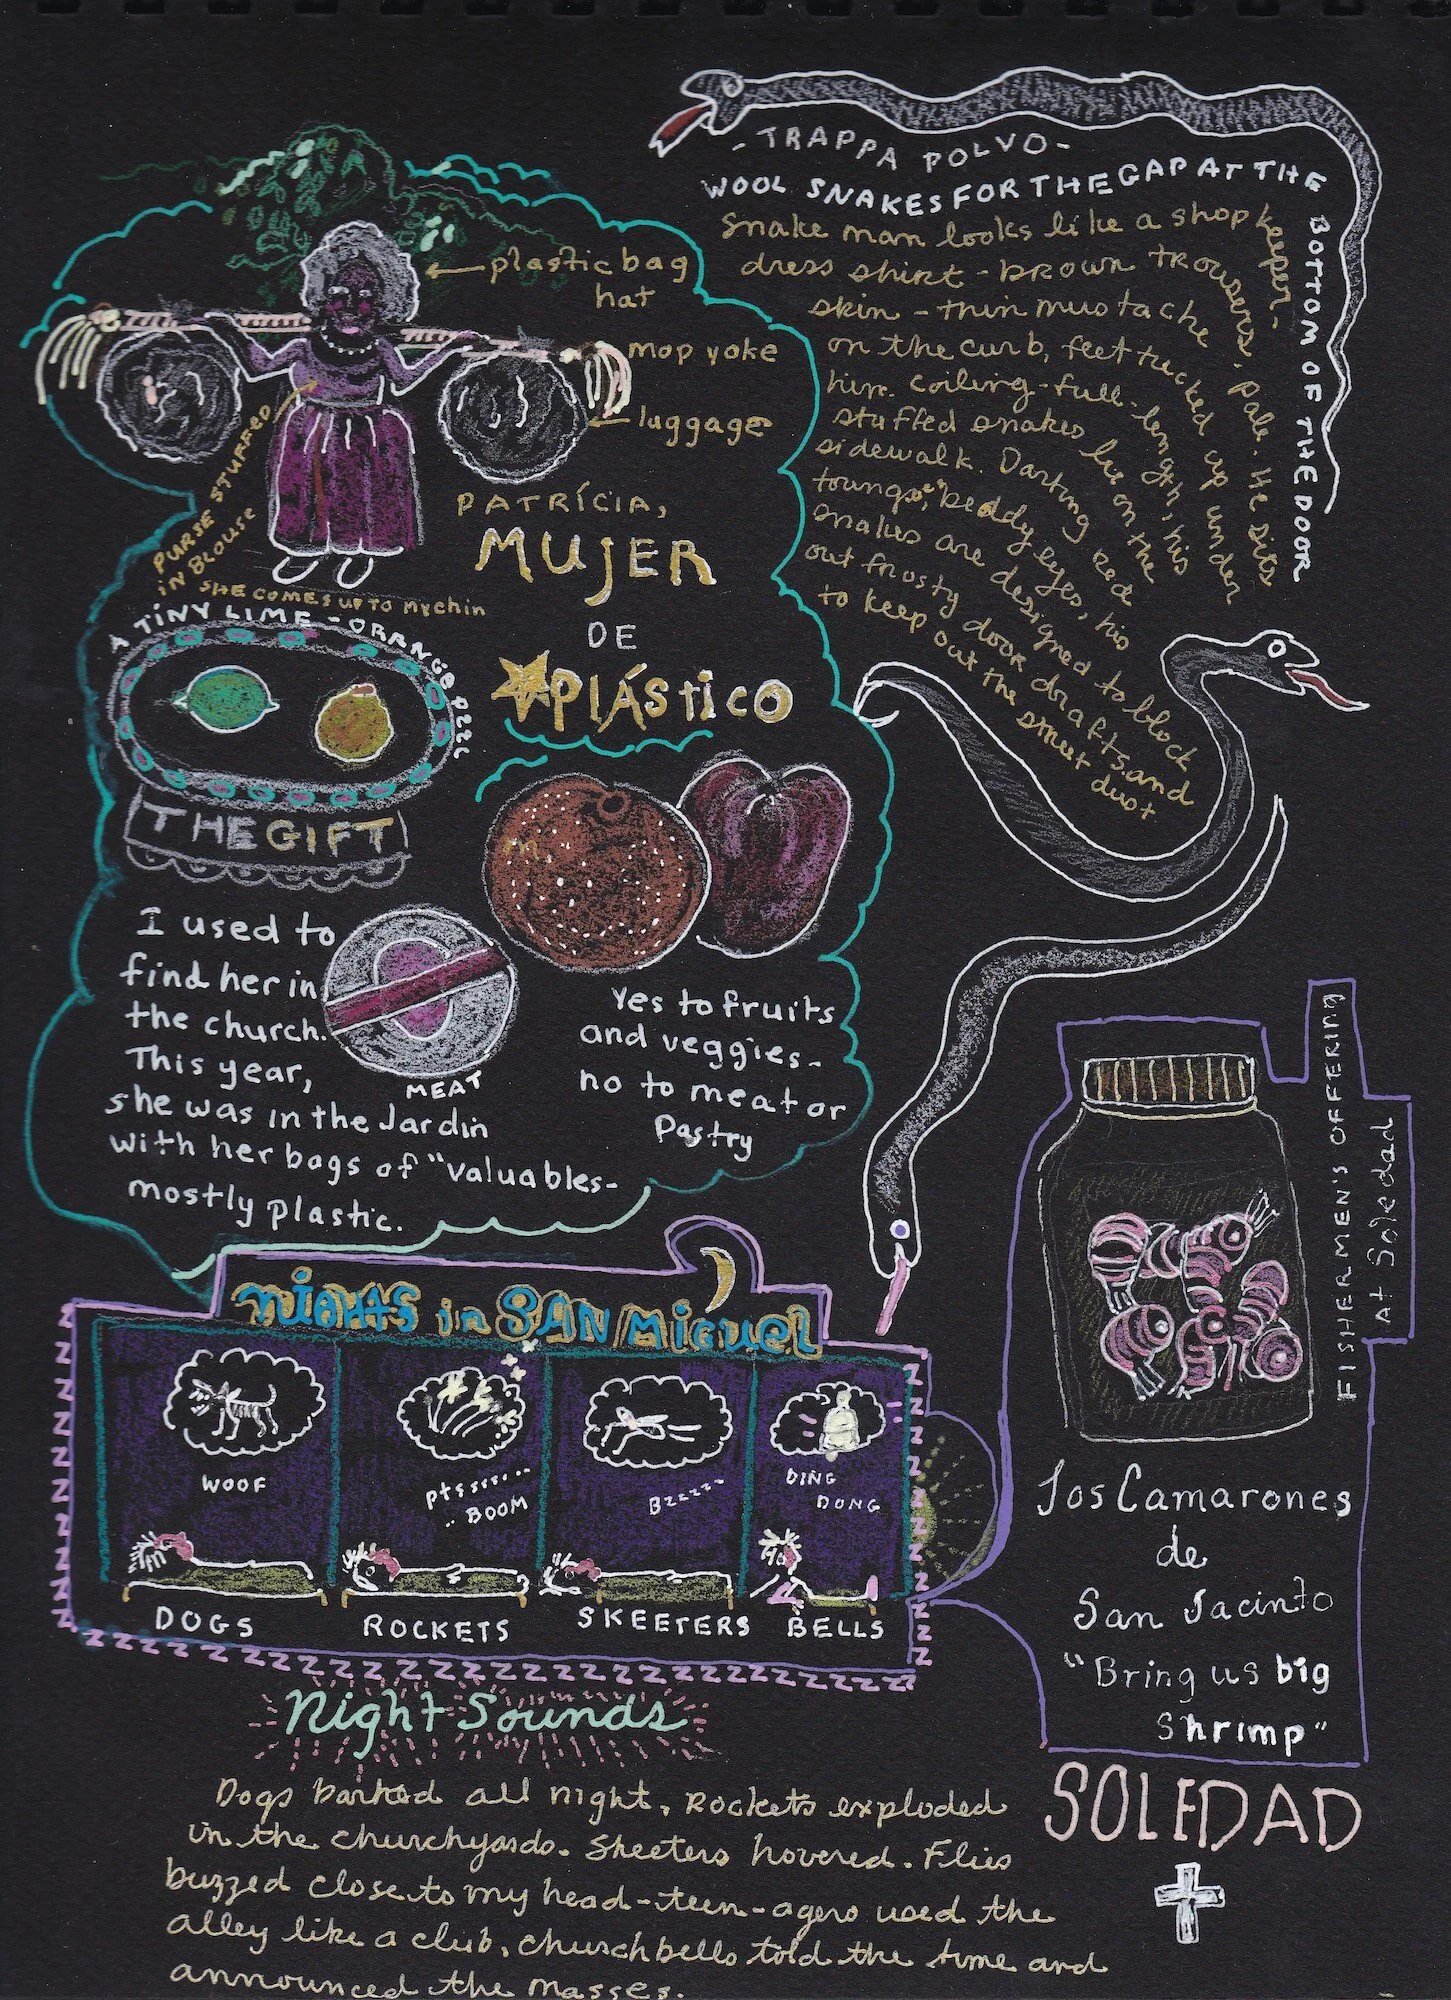 -TRAPPA POLVO-
WOOL SNAKES FOR THE GAP AT THE
BOTTOM OF THE DOOR
Snake man looks like a shop keeper-
dress shirt - brown trousers. pale
skin - thin mustache. He sits
on the curb, feet tucked up under
him. Coiling - full-length, his
stuffed snakes lie on the
sidewalk. Darting red
toungs, beady eyes, his
snakes are designed to block
out frosty door drafts. and
to keep out the smut dust
plastic bag
hat
mop yoke
luggage
PURSE STUFFED
IN BLOUSE
SHE COMES UP TO my chin
PATRÍCIA,
MUJER
DE
PLÁStiCO
A TINY LIME - ORANGE
THE GIFT
I used to
find her in
the church.
This year,
she was in the Jardin
with her bags of "valuables-
mostly plastic.
MEAT
Yes to fruits
and veggies-
no to meat or
Pastry
FISHERMEN'S OFFERING
At Soledad
Los Camarones
de
San Jacinto
"Bring us big
Shrimp"
SOLEDAD
NIGHTS in SAN MIGUEL
WOOF
ptssss.....
..BOOM
Bzzzz--
DING
DONG
DOGS
ROCKETS
SKEETERS
BELLS
Night Sounds
Dogs barked all night, Rockets exploded
in the churchyards. Skeeters hovered. Flies
buzzed close to my head - teen-agers used the
alley like a club, church bells told the time and
announced the masses.